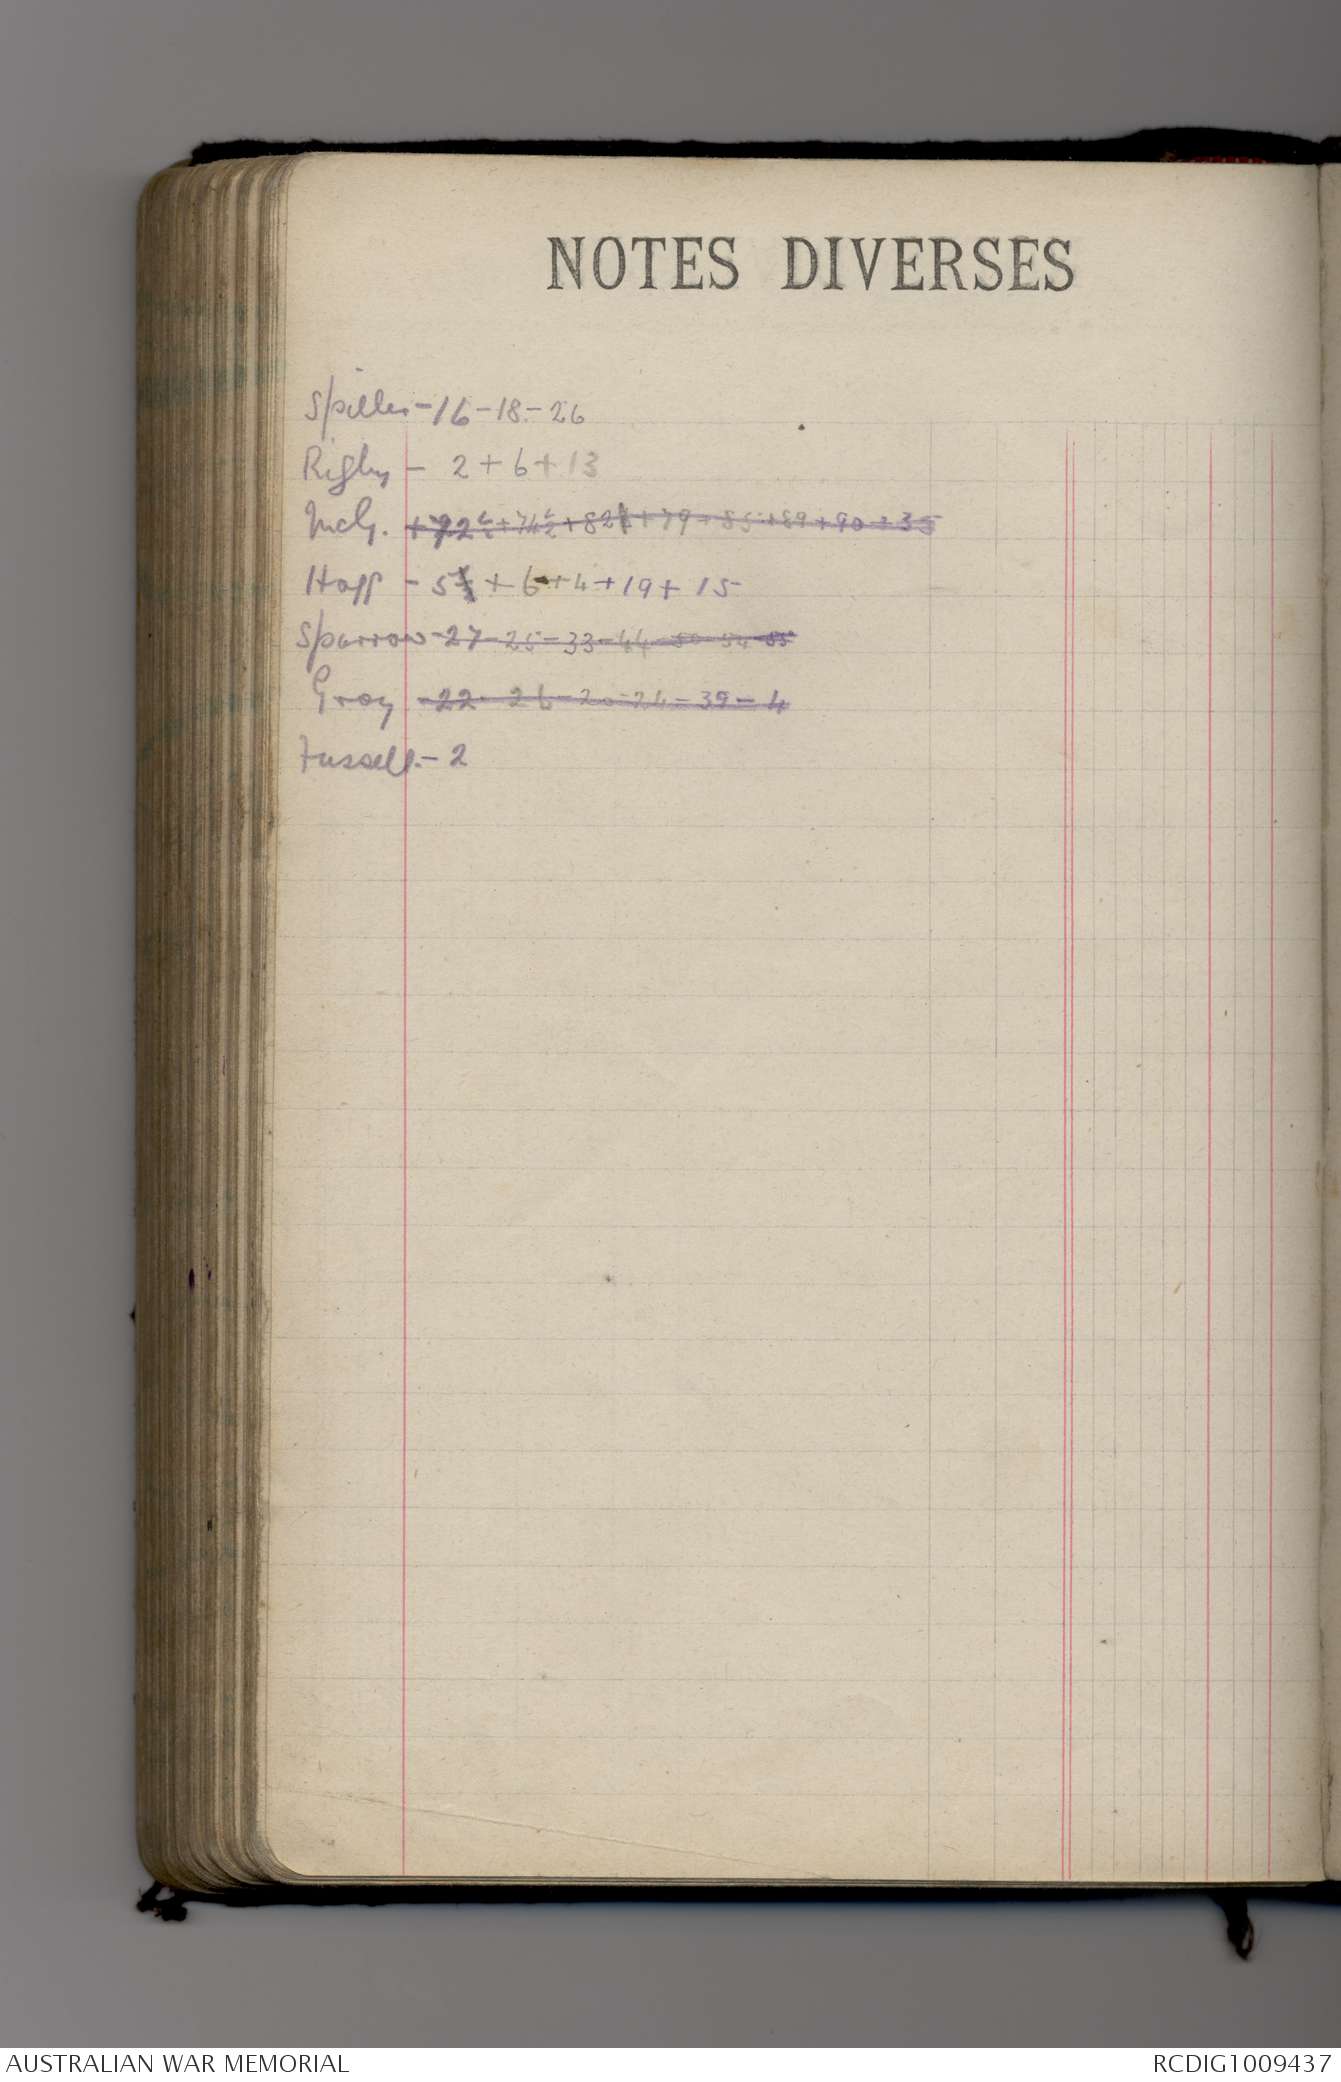 NOTES DIVERSES
Spiller - 16 - 18 - 26
Rigby - 2 + 6 + 13
McG. + 72½ + 74½ + 82 + 79 + 85 + 89 + 90 + 35
Hoff - 5 + 6 + 4 + 19 + 15
Sparrow - 27 - 25 - 33 - 44 - 50 - 54 - 55
Gray - 22 - 26 - 20 - 24 - 39 - 4
Fussell. - 2
AUSTRALIAN WAR MEMORIAL
RCDIG1009437